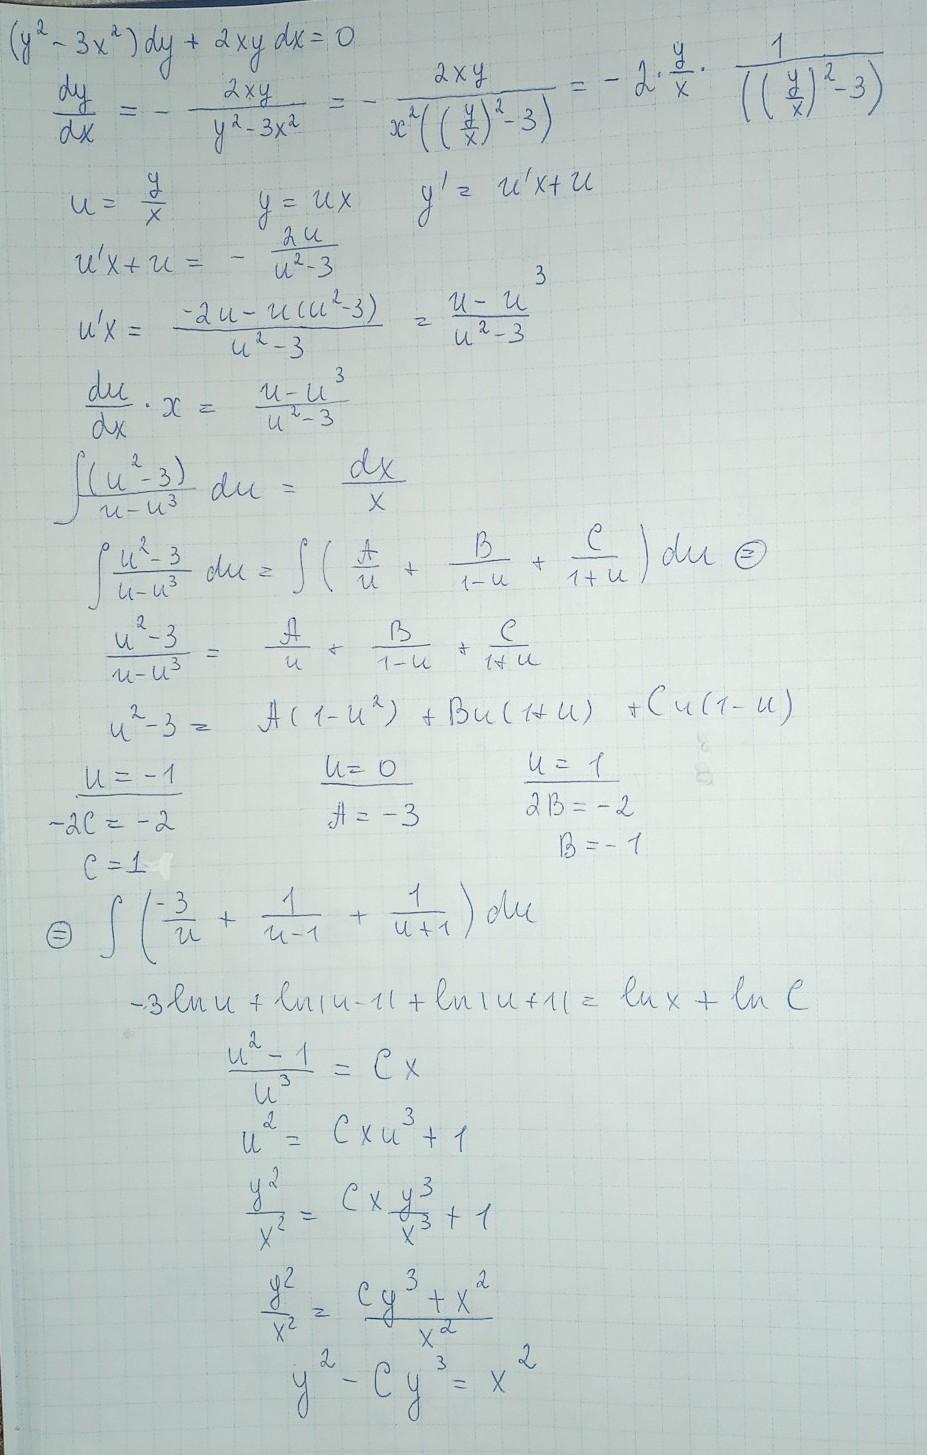 (y² - 3x²) dy + 2xy dx = 0
dy/dx = - 2xy/(y² - 3x²) = - 2xy/(x²((y/x)² - 3)) = - 2 · y/x · 1/((y/x)² - 3)
u = y/x    y = ux    y' = u'x + u
u'x + u = - 2u/(u² - 3)
u'x = (-2u - u(u² - 3))/(u² - 3) = (u - u³)/(u² - 3)
du/dx · x = (u - u³)/(u² - 3)
∫ (u² - 3)/(u - u³) du = dx/x
∫ (u² - 3)/(u - u³) du = ∫ (A/u + B/(1 - u) + C/(1 + u)) du ⊜
(u² - 3)/(u - u³) = A/u + B/(1 - u) + C/(1 + u)
u² - 3 = A(1 - u²) + Bu(1 + u) + Cu(1 - u)
u = -1    u = 0    u = 1
-2C = -2    A = -3    2B = -2
C = 1    B = -1
⊜ ∫ (-3/u + 1/(u - 1) + 1/(u + 1)) du
-3 ln u + ln|u - 1| + ln|u + 1| = ln x + ln C
(u² - 1)/u³ = Cx
u² = Cxu³ + 1
y²/x² = Cx y³/x³ + 1
y²/x² = (Cy³ + x²)/x²
y² - Cy³ = x²